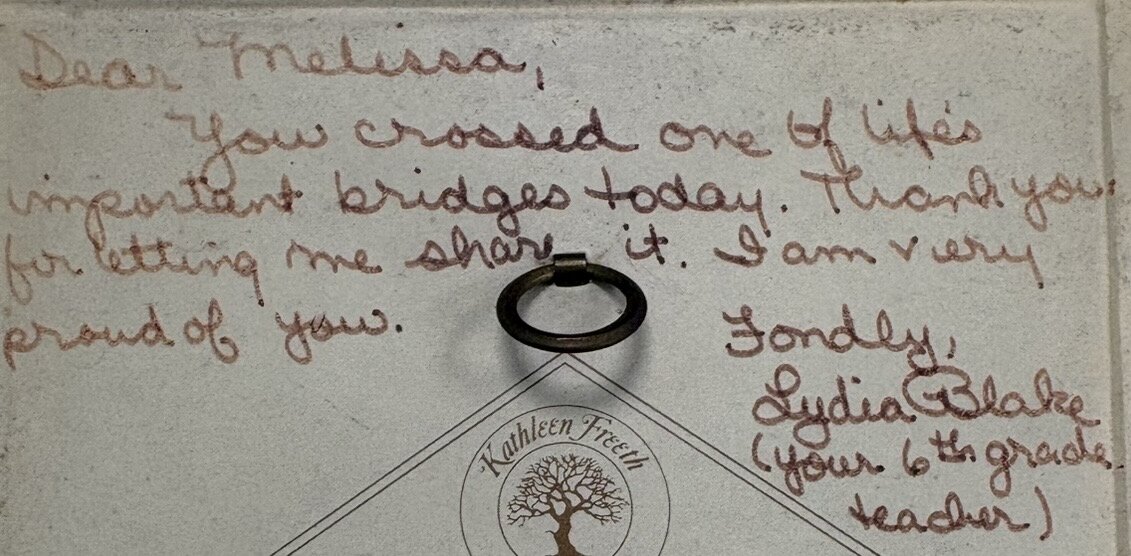 Dear Melissa,
You crossed one of life's
important bridges today. Thank you
for letting me share it. I am very
proud of you.
Fondly,
Lydia Blake
(your 6th grade
teacher)
Kathleen Freeth